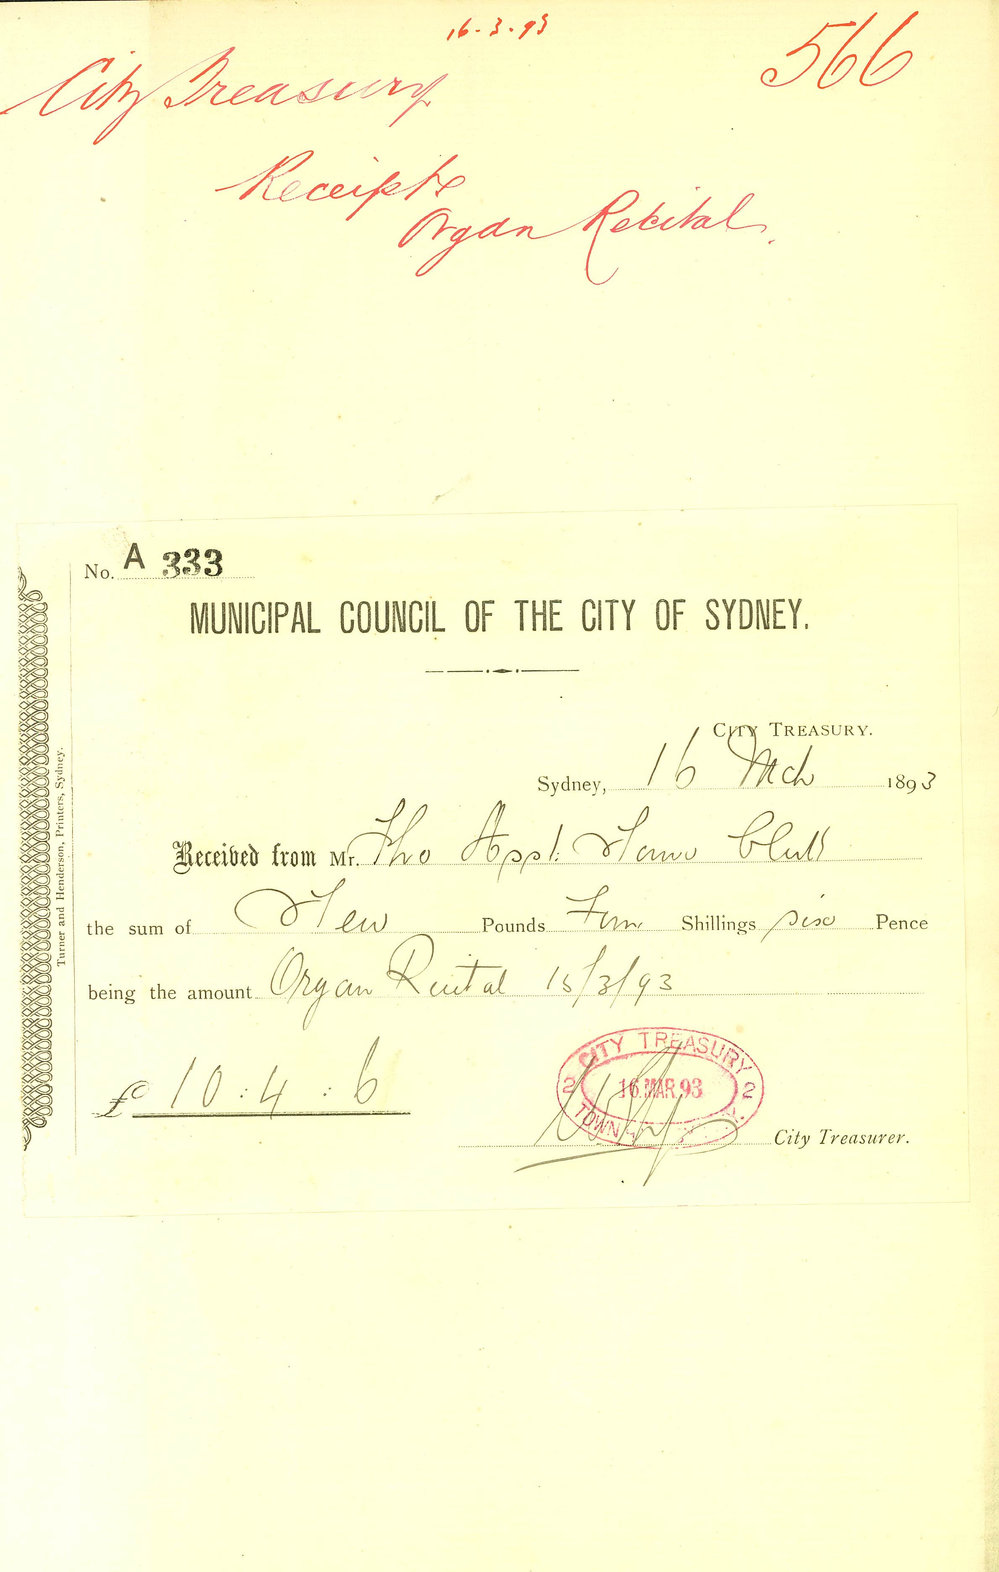 16-3-93
566
City Treasury
Receipts
Organ Recital.
No. A 333
MUNICIPAL COUNCIL OF THE CITY OF SYDNEY.
CITY TREASURY.
Sydney, 16 Mch 1893
Received from Mr. The Asst. Town Clerk
the sum of Ten Pounds Four Shillings six Pence
being the amount Organ Recital 15/3/93
£ 10:4:6
CITY TREASURY
2 16.MAR.93 2
TOWN
City Treasurer.
Turner and Henderson, Printers, Sydney.